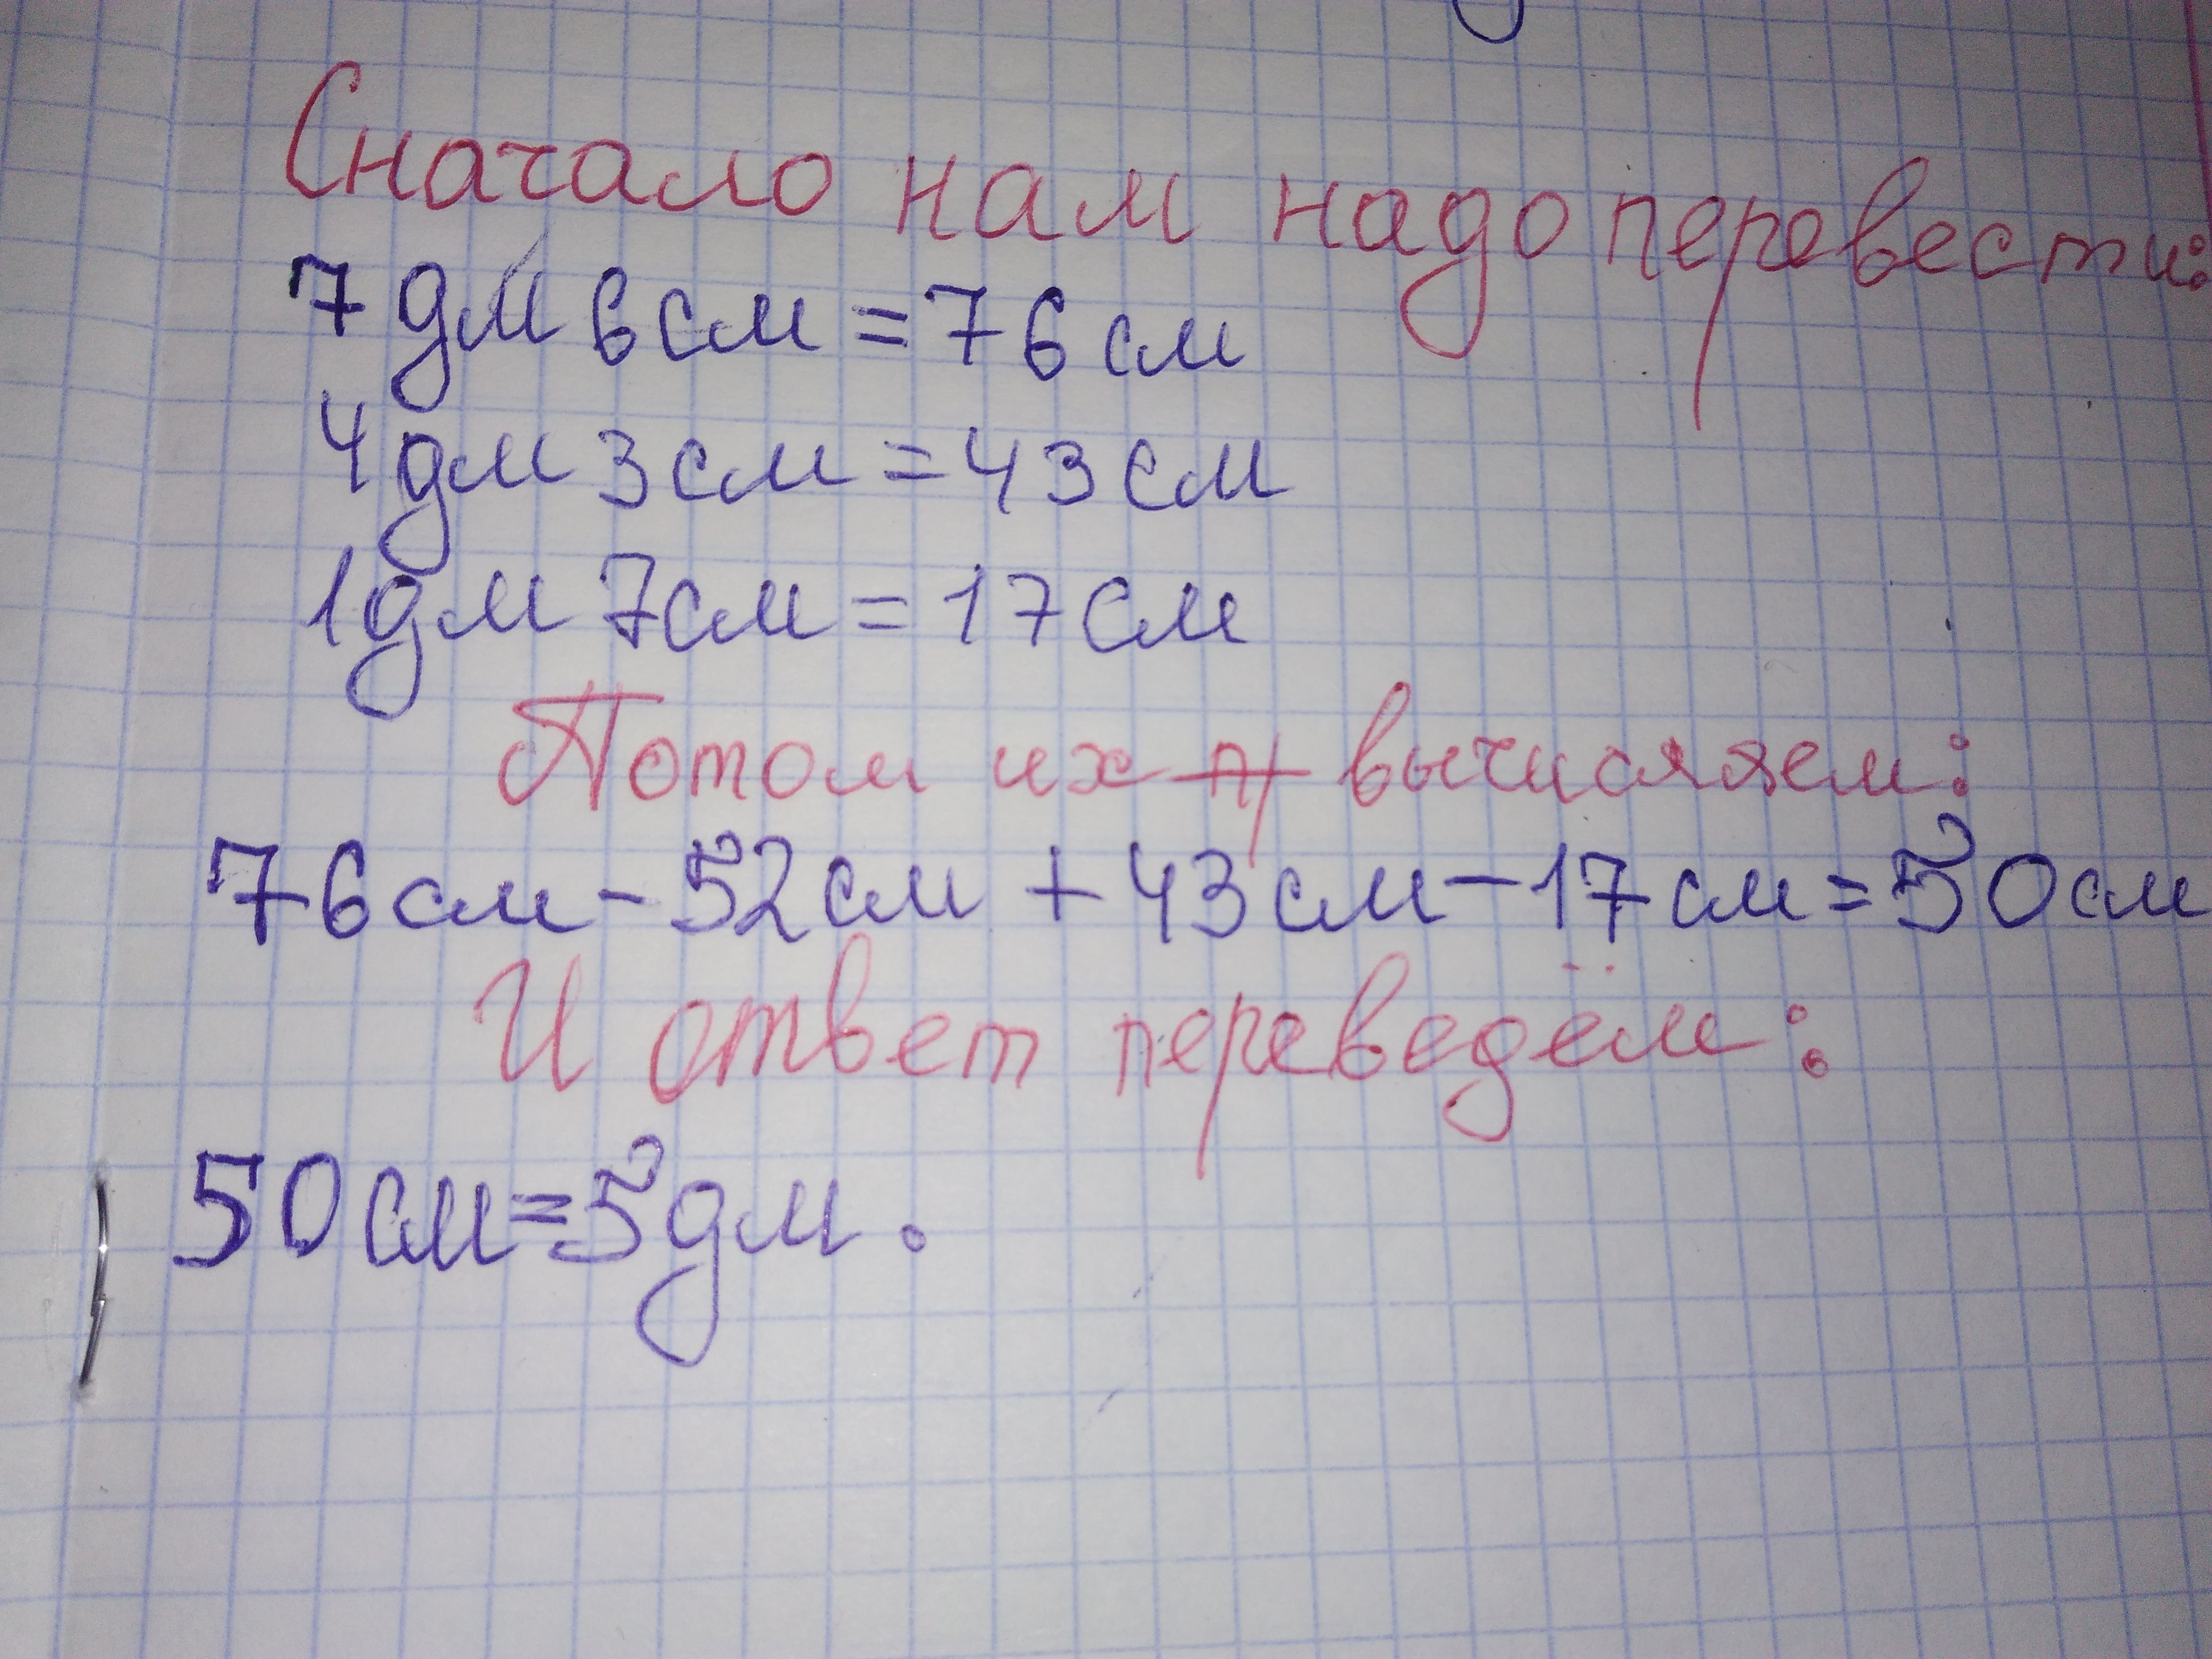 Сначало нам надо перевести:
7 дм 6 см = 76 см
4 дм 3 см = 43 см
1 дм 7 см = 17 см
Потом их вычисляем:
76 см - 52 см + 43 см - 17 см = 50 см
И ответ переведём:
50 см = 5 дм.